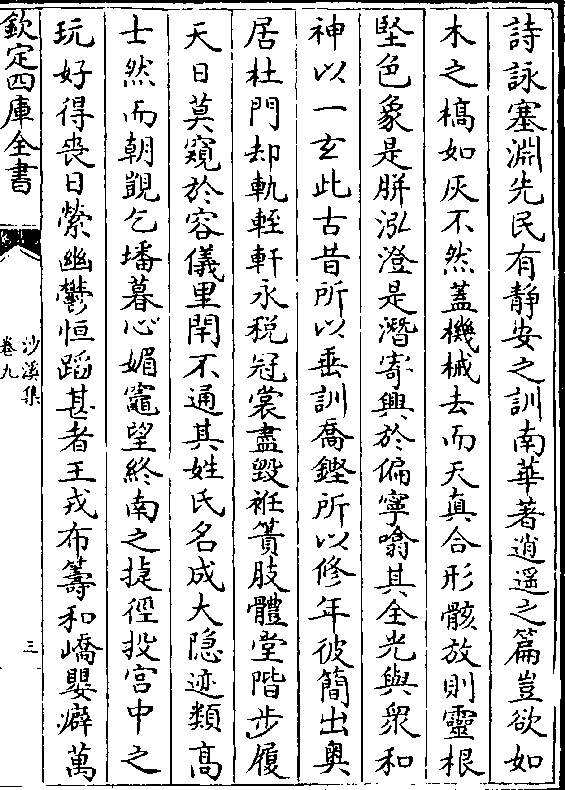 詩詠塞淵先民有靜安之訓南華著逍遥之篇豈欲如
木之槁如灰不然蓋機械去而天真合形骸放則靈根
堅色象是胼泓澄是潛寄興於偏寧噏其全光與衆和
神以一玄此古昔所以垂訓喬鏗所以修年彼簡出奥
居杜門却軌輊軒永税冠裳盡毁袵簀肢體堂階步履
天日莫窺於容儀里閈不通其姓氏名成大隐迹類髙
士然而朝覬乞墦暮心媚竈望終南之捷徑投宫中之
玩好得喪日縈幽鬱恒蹈甚者王戎布籌和嶠嬰癖萬
欽定四庫全書
沙溪集
卷九
三